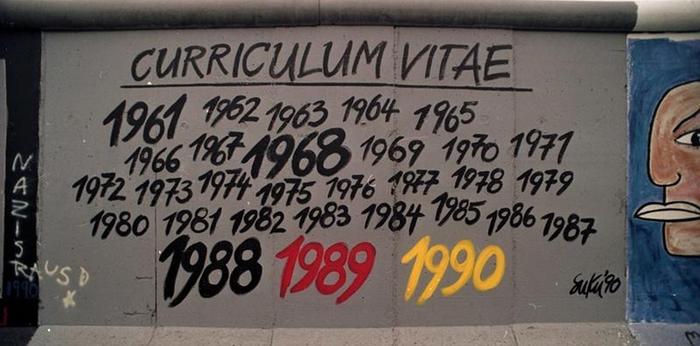 CURRICULUM VITAE
1961 1962 1963 1964 1965
1966 1967 1968 1969 1970 1971
1972 1973 1974 1975 1976 1977 1978 1979
1980 1981 1982 1983 1984 1985 1986 1987
1988 1989 1990
SuKi '90
NAZIS
RAUS
1990